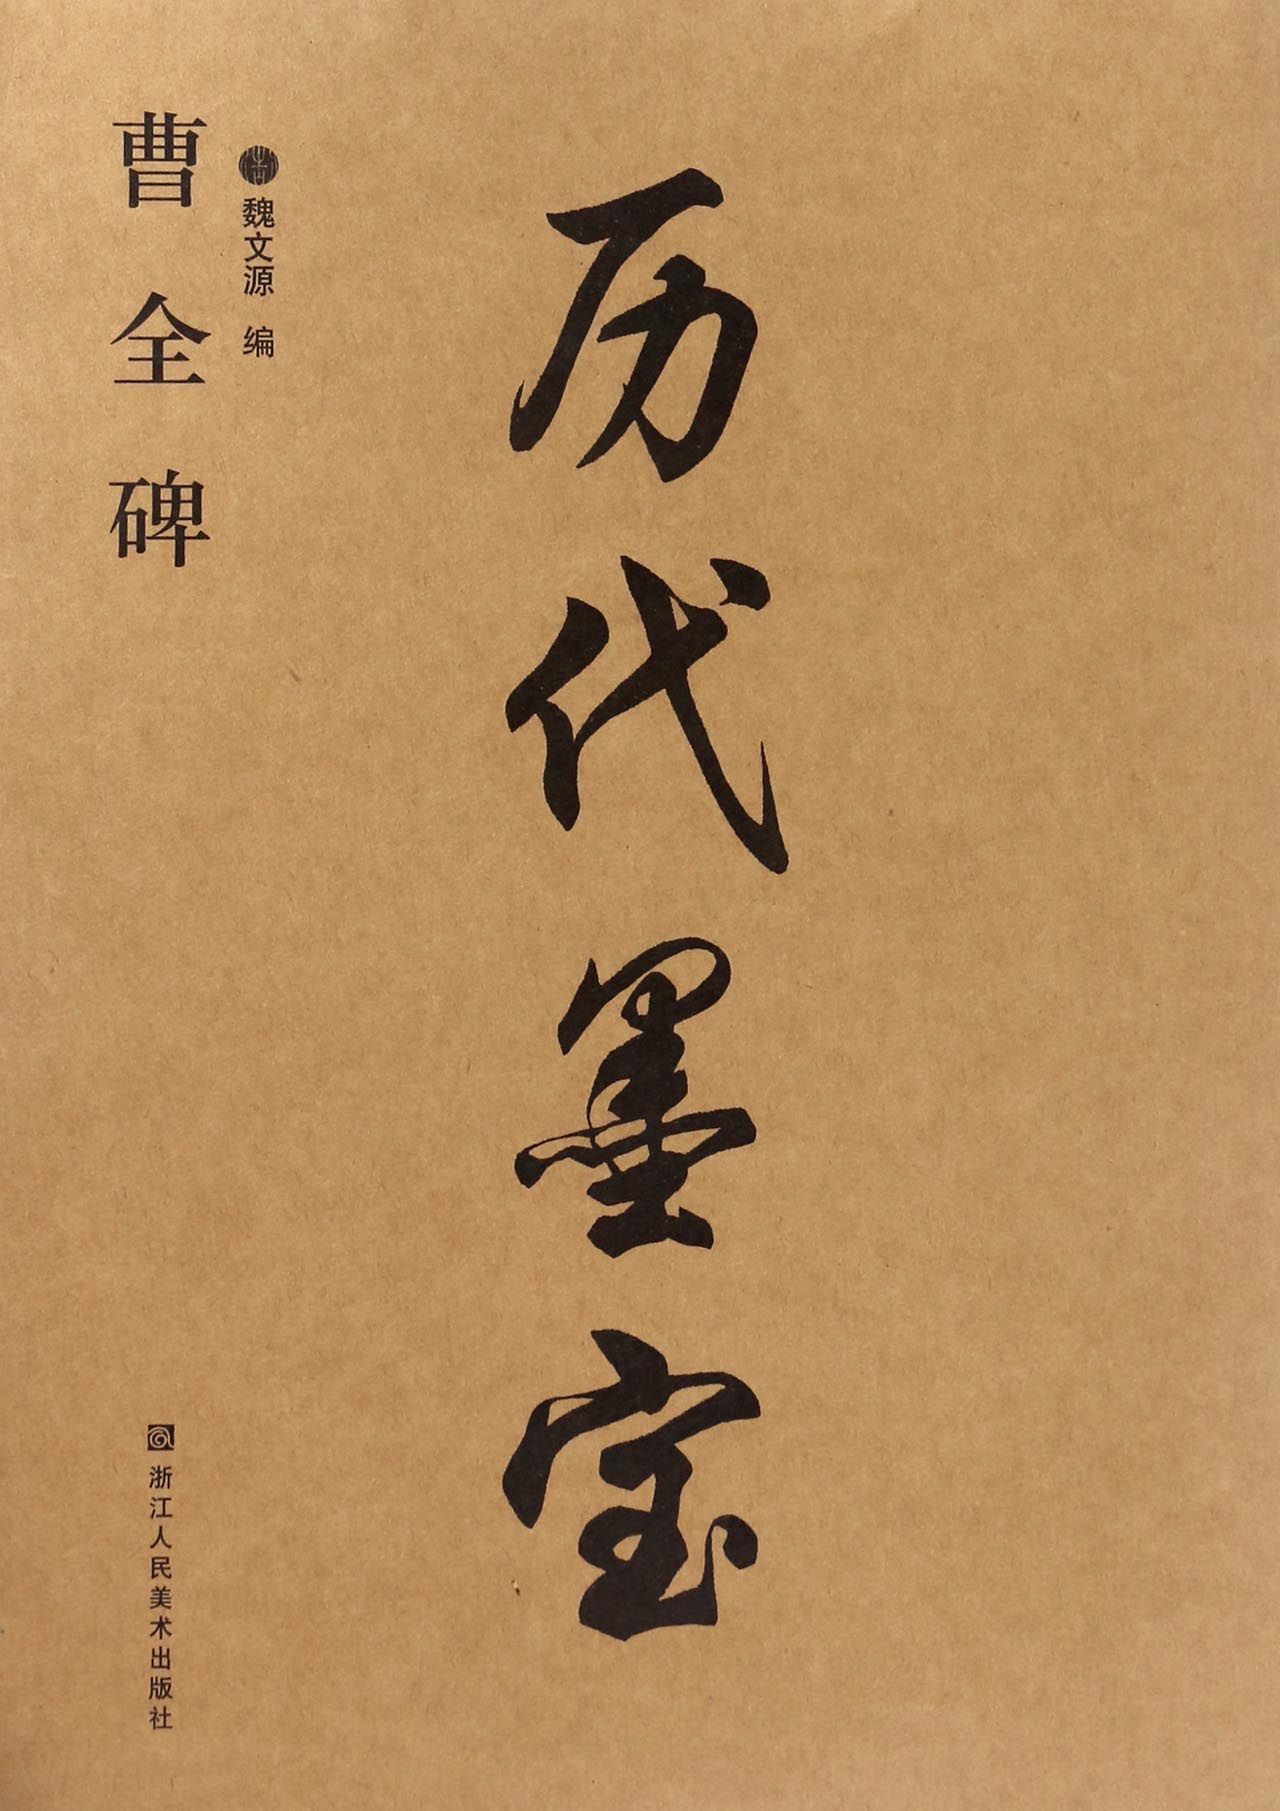 历代墨宝
魏文源 编
曹全碑
浙江人民美术出版社